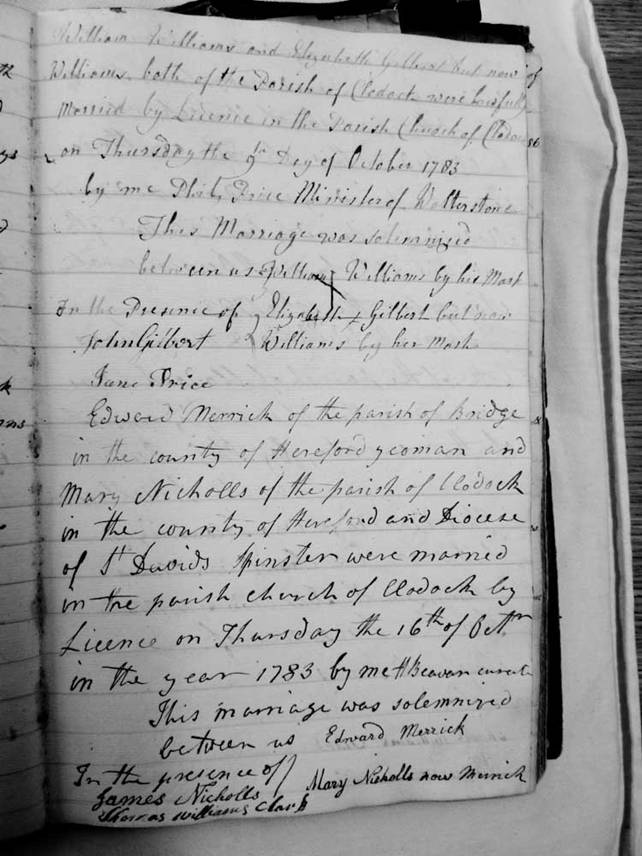 William Williams and Elizabeth Gilbert but now
Williams both of the Parish of Clodock were lawfully
Married by Licence in the Parish Church of Clodock
on Thursday the 9th Day of October 1783
by me Phil, Price Minister of Walterstone
This Marriage was solemnized
between us William X Williams by his Mark
In the Presence of Elizabeth + Gilbert but now
John Gilbert Williams by her Mark
Jane Price
Edward Merrick of the parish of Bridge
in the county of Hereford yeoman and
Mary Nicholls of the parish of Clodock
in the county of Hereford and Diocese
of St Davids Spinster were married
in the parish church of Clodock by
Licence on Thursday the 16th of Octr
in the year 1783 by me H Beavan curate
This marriage was solemnized
between us Edward Merrick
In the presence of Mary Nicholls now Merrick
James Nicholls
Thomas Williams Clark